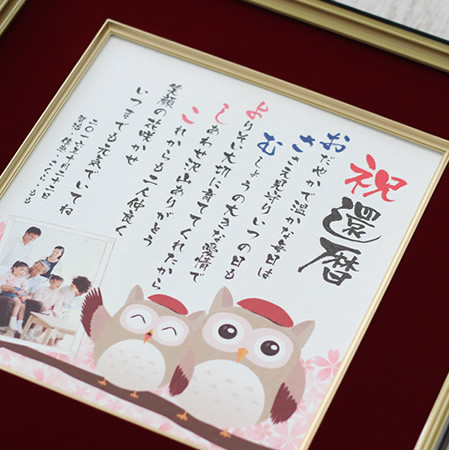 祝
還暦
おだやかで温かな毎日は
ささえ見守りいつの日も
むしょうの大きな愛情で
よりそい大切に育ててくれたから
しあわせ沢山ありがとう
これからも二人仲良く
笑顔の花咲かせ
いつまでも元気でいてね